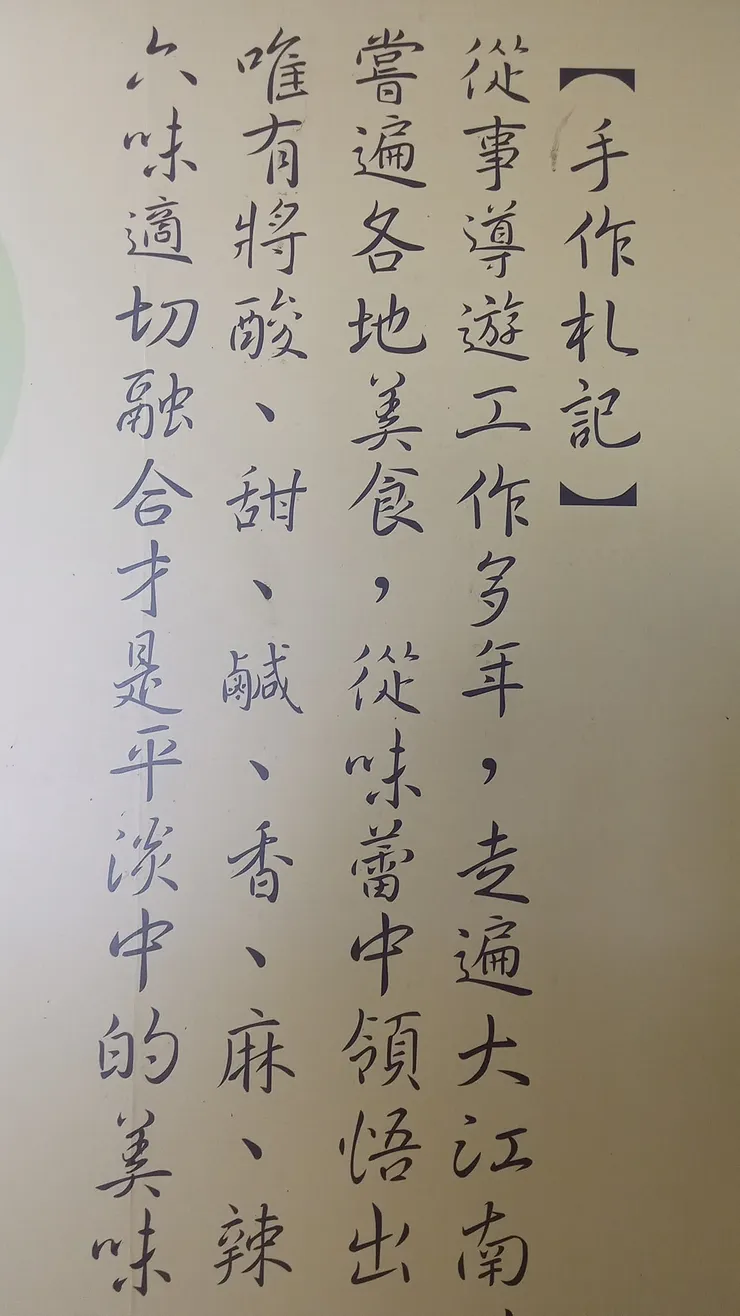 【手作札記】
從事導遊工作多年,走遍大江南
嘗遍各地美食,從味蕾中領悟出
唯有將酸、甜、鹹、香、麻、辣
六味適切融合才是平淡中的美味